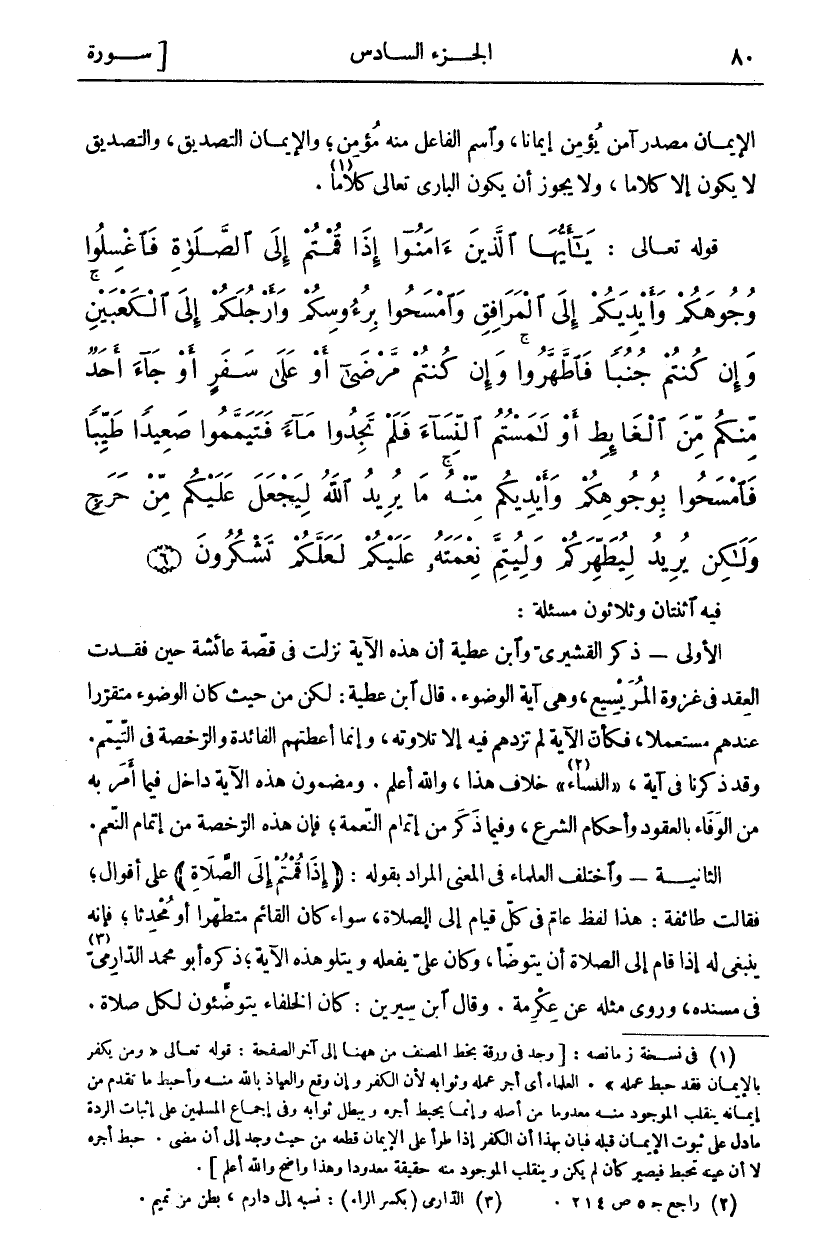 ٨٠ الجـــزء السادس [ ســـورة
الإيمــان مصدر آمن يُؤمِن إيمانا، وٱسم الفاعل منه مُؤمِن؛ والإيمــان التصديق، والتصديق
لا يكون إلا كلاما ، ولا يجوز أن يكون البارى تعالى كلامًا(١) .
قوله تعــالى : يَـٰٓأَيُّهَـا ٱلَّذِينَ ءَامَنُوٓا إِذَا قُمْتُمْ إِلَى ٱلصَّـلَوٰةِ فَٱغْسِلُوا
وُجُوهَكُمْ وَأَيْدِيَكُمْ إِلَى ٱلْمَرَافِقِ وَٱمْسَحُوا بِرُءُوسِكُمْ وَأَرْجُلَكُمْ إِلَى ٱلْكَعْبَيْنِۚ
وَإِن كُنتُمْ جُنُبًا فَٱطَّهَّرُواۚ وَإِن كُنتُمْ مَّرْضَىٰٓ أَوْ عَلَىٰ سَـفَرٍ أَوْ جَآءَ أَحَدٌ
مِّنكُم مِّنَ ٱلْغَايِطِ أَوْ لَـٰمَسْتُمُ ٱلنِّسَآءَ فَلَمْ تَجِدُوا مَـآءً فَتَيَمَّمُوا صَعِيدًا طَيِّبًا
فَٱمْسَحُوا بِوُجُوهِكُمْ وَأَيْدِيكُم مِّنْـهُۚ مَا يُرِيدُ ٱللَّهُ لِيَجْعَلَ عَلَيْكُم مِّنْ حَرَجٍ
وَلَـٰكِن يُرِيدُ لِيُطَهِّرَكُمْ وَلِيُتِمَّ نِعْمَتَهُۥ عَلَيْكُمْ لَعَلَّكُمْ تَشْكُرُونَ ۝٦
فيه ٱثنتان وثلاثون مسئلة :
الأولى — ذكر القشيرىّ وٱبن عطية أن هذه الآية نزلت فى قصّة عائشة حين فقـدت
العِقد فى غزوة المُرَيْسِيع، وهى آية الوضوء . قال ٱبن عطية : لكن من حيث كان الوضوء متقرّرا
عندهم مستعملا، فكأن الآية لم تزدهم فيه إلا تلاوته ، وإنما أعطتهم الفائدة والرّخصة فى التّيمّم.
وقد ذكرنا فى آية ، «النساء»(٢) خلاف هذا ، والله أعلم . ومضمون هذه الآية داخل فيما أَمَر به
من الوَفَاء بالعقود وأحكام الشرع ، وفيما ذَكَر من إتمام النّعمة؛ فإن هذه الرّخصة من إتمام النّعم.
الثانيــــة — وٱختلف العلماء فى المعنى المراد بقوله : ﴿ إِذَا قُمْتُمْ إِلَى الصَّلَاةِ ﴾ على أقوال؛
فقالت طائفة : هذا لفظ عامّ فى كلّ قيام إلى الصلاة، سواء كان القائم متطهّرا أو مُحْدِثا ؛ فإنه
ينبغى له إذا قام إلى الصلاة أن يتوضّأ ، وكان علىّ يفعله ويتلو هذه الآية؛ ذكره أبو محمد الدّارمىّ(٣)
فى مسنده، وروى مثله عن عِكْرِمة . وقال ٱبن سِيرين : كان الخلفاء يتوضّئون لكل صلاة .
(١) فى نسخة ز مانصه : [ وجد فى ورقة بخط المصنف من ههنا إلى آخر الصفحة : قوله تعـالى « ومن يكفر
بالإيمـان فقد حبط عمله » . العلماء أى أجر عمله وثوابه لأن الكفر وإن وقع والعياذ بالله منـه وأحبط ما تقدم من
إيمـانه ينقلب الموجود منـه معدوما من أصله وإنمـا يحبط أجره ويبطل ثوابه وفى إجمـاع المسلمين على إثبات الردة
مادل على ثبوت الإيمـان قبله فبان بهذا أن الكفر إذا طرأ على الإيمان قطعه من حيث وجد إلى أن مضى . حبط أجره
لا أن عينه تحبط فيصير كأن لم يكن وينقلب الموجود منه حقيقة معدودا وهذا واضح والله أعلم ] .
(٢) راجع جـ ٥ ص ٢١٤ . (٣) الدّارمى (بكسر الراء) : نسبة إلى دارم ، بطن من تميم .